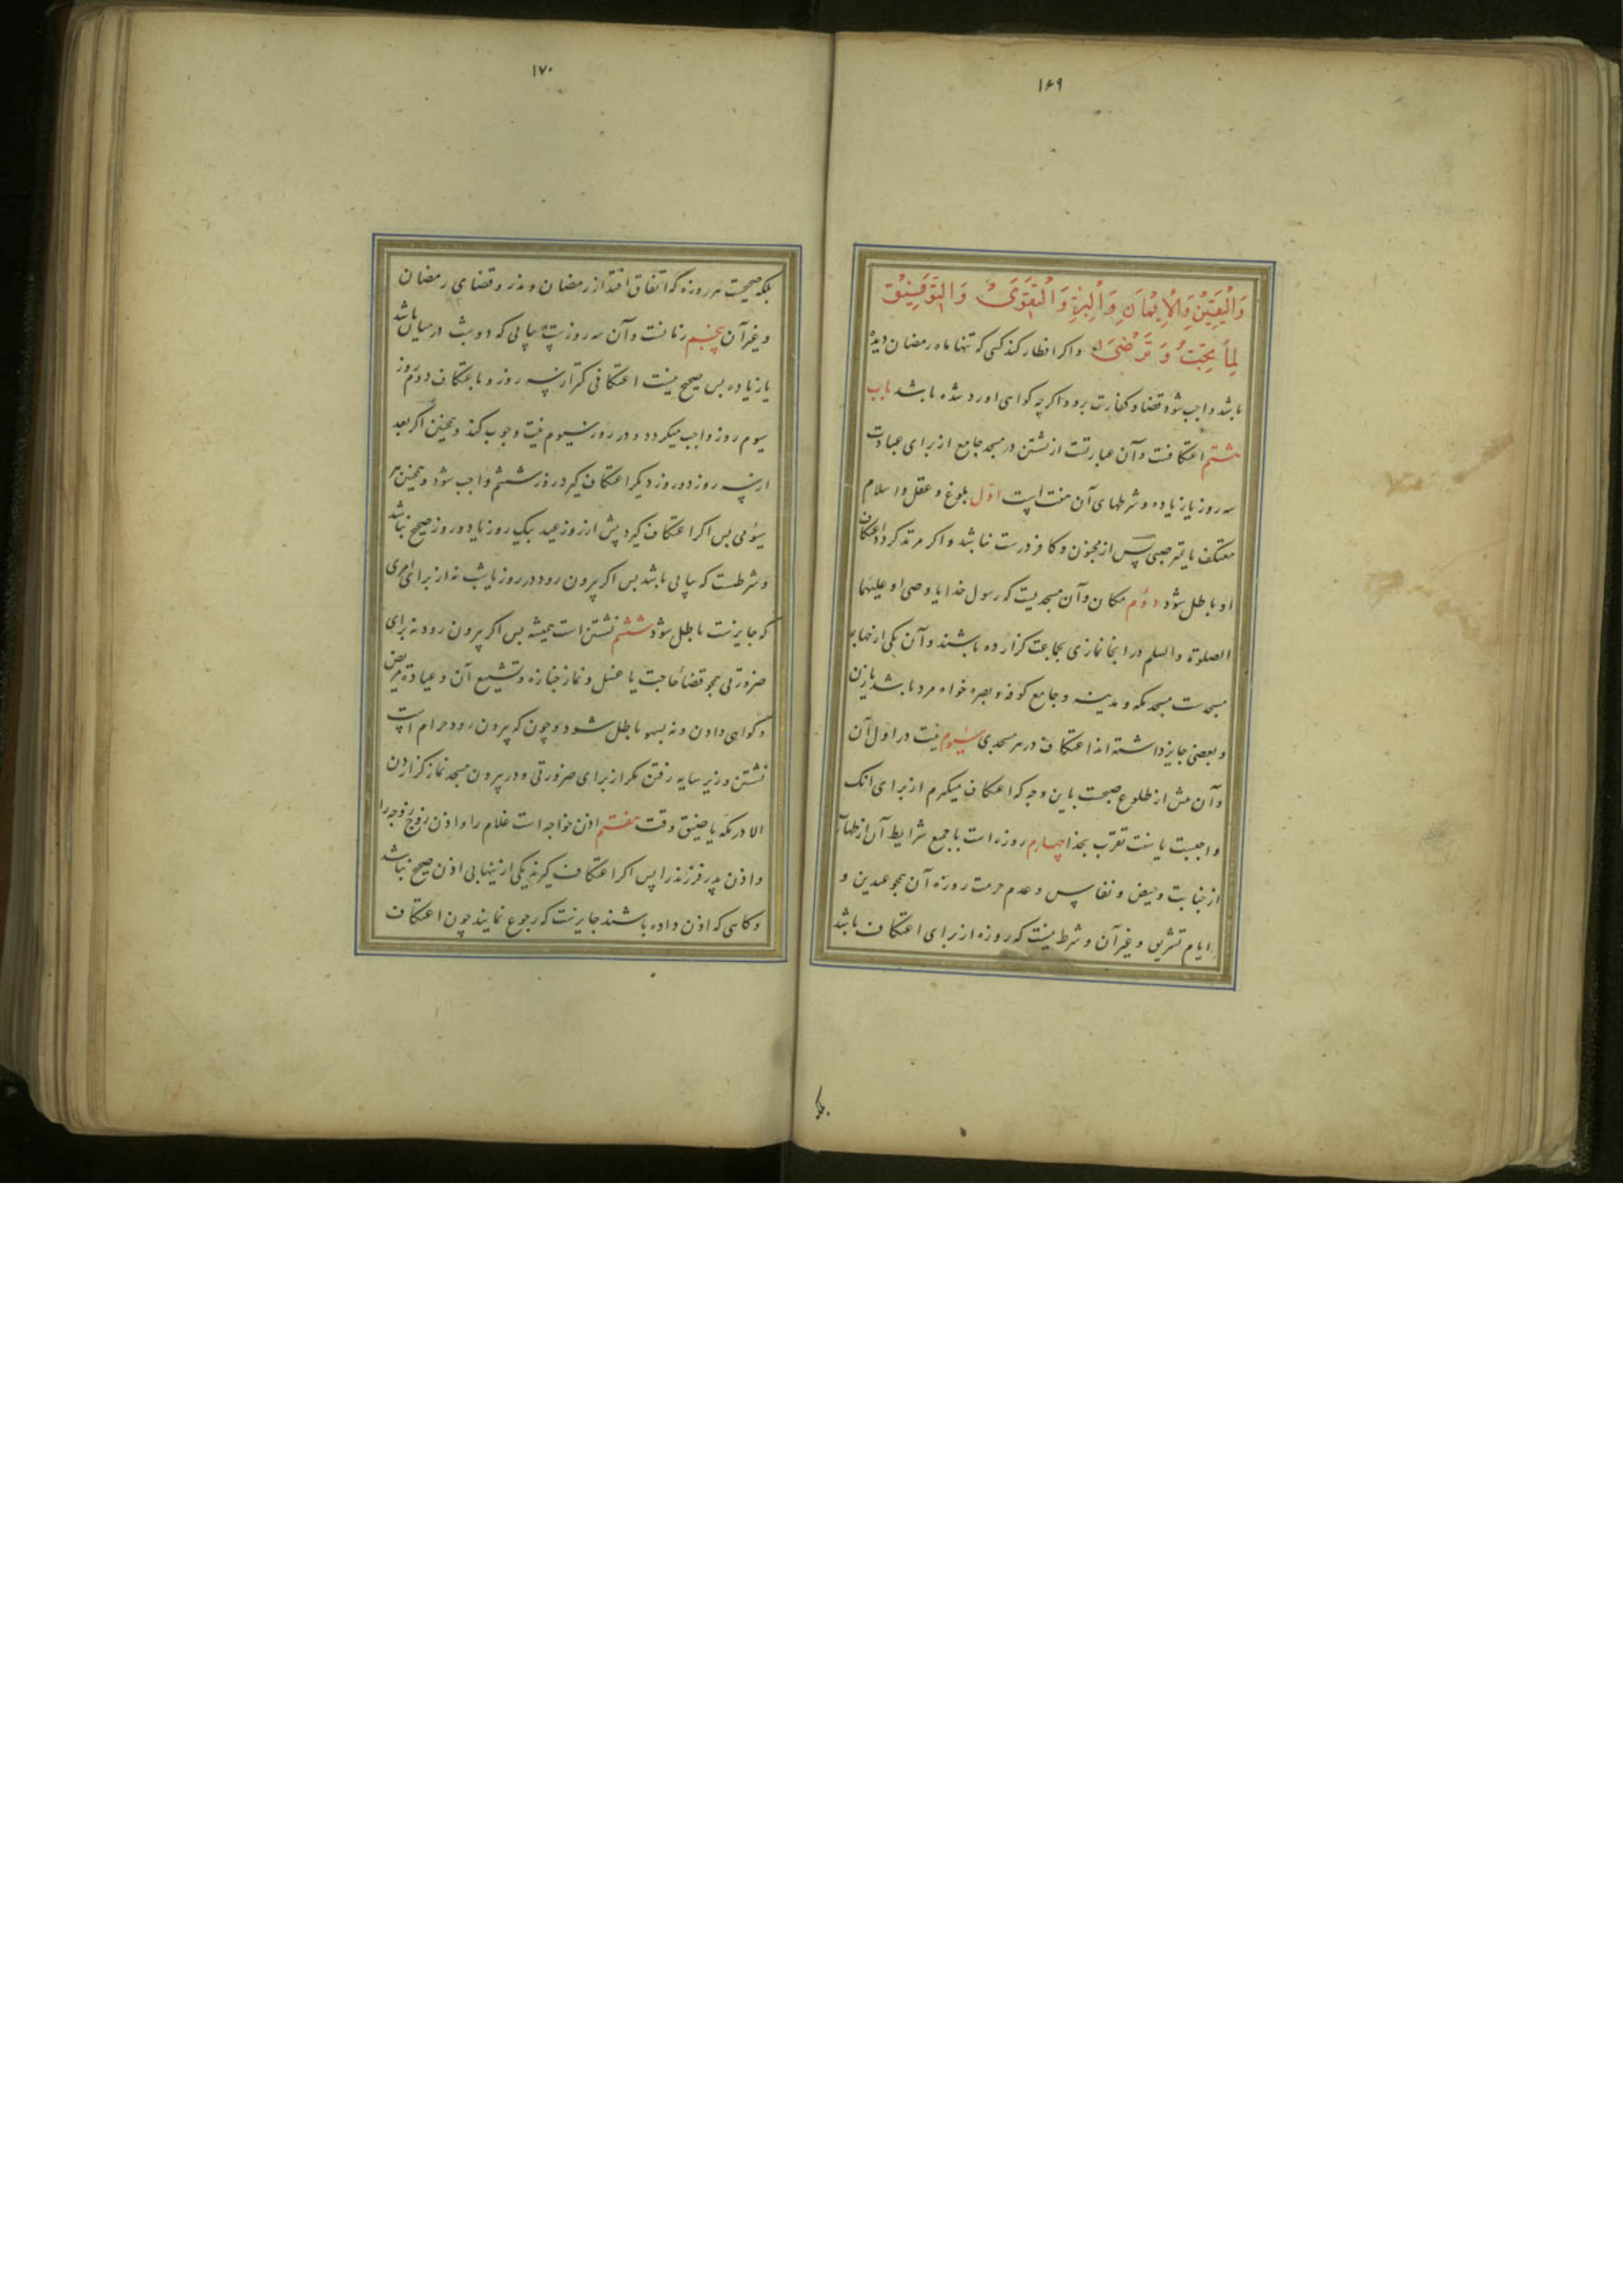 ۱۶۹
وَالْیَقِیْنِ وَالْاِیْمَانِ وَالْبِرِّ وَالْتَّقْوَیٰ وَالتَّوْفِیْقِ
لِمَا یُحِبُّ وَ تَرْضیٰ واکر افطار کند کسی که تنها ماه رمضان دیده
باشد واجب شود قضا و کفارت برو واکرچه کواهی او رد شده باشد باب
هشتم اعتکافست وآن عبارتست از نشستن در مسجد جامع از برای عبادت
سه روز یا زیاده وشرطهای آن هفت است اوّل بلوغ و عقل و اسلام
معتکف یا تمیز صبی پس از مجنون وکافر درست نباشد واکر مرتد کردد اعتکاف
او باطل شود دوم مکان وآن مسجدیست که رسول خدا یا وصی او علیهما
الصلوة والسلم در انجا نمازی بجماعت کزارده باشند وآن یکی از چهار
مسجدست مسجد مکه و مدینه و جامع کوفه و بصره خواه مرد باشد یا زن
و بعضی جایز داشته اند اعتکاف در هر مسجدی سیوم نیت در اول آن
وآن پیش از طلوع صبحست باین وجه که اعتکاف میکیرم از برای انک
واجبست یا سنت تقرب بخدا چهارم روزه است با جمیع شرایط آن از طهارت
از جنابت وحیض و نفاس و عدم حرمت روزه آن همچو عیدین و
ایام تشریق و غیر آن و شرط نیست که روزه از برای اعتکاف باشد
بلکه
۱۷۰
بلکه صحیحست هر روزه که اتفاق افتد از رمضان ونذر و قضای رمضان
وغیر آن پنجم زمانست وآن سه روزست پیاپی که دو شب در میان باشد
یا زیاده پس صحیح نیست اعتکافی کمتر از سه روز و باعتکاف دوم روز
سیوم روز واجب میکردد و در روز سیوم نیت وجوب کند وهمچنین اکر بعد
از سه روز دو روز دیکر اعتکاف کیرد روز ششم واجب شود وهمچنین هر
سیومی پس اکر اعتکاف کیرد پیش از روز عید بیک روز یا دو روز صحیح نباشد
وشرطست که پیاپی باشد پس اکر بیرون رود در روز یا شب نه از برای امری
که جایزست باطل شود ششم نشستن است همیشه پس اکر بیرون رود نه برای
ضرورتی همچو قضاء حاجت یا غسل و نماز جنازه وتشییع آن و عیادة مریض
وکواهی دادن و نه بسهو باطل شود وچون که بیرون رود حرام است
نشستن و زیر سایه رفتن مکر از برای ضرورتی ودر بیرون مسجد نماز کزاردن
الا در مکه یا ضیق وقت هفتم اذن خواجه است غلام را واذن زوج زوجه را
واذن پدر فرزند را پس اکر اعتکاف کیرند یکی از اینها بی اذن صحیح نباشد
وکاهی که اذن داده باشند جایزست که رجوع نمایند چون اعتکاف